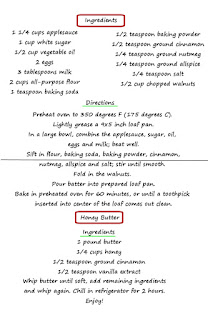 Ingredients
1 1/4 cups applesauce
1 cup white sugar
1/2 cup vegetable oil
2 eggs
3 tablespoons milk
2 cups all-purpose flour
1 teaspoon baking soda
1/2 teaspoon baking powder
1/2 teaspoon ground cinnamon
1/4 teaspoon ground nutmeg
1/4 teaspoon ground allspice
1/4 teaspoon salt
1/2 cup chopped walnuts
Directions
Preheat oven to 350 degrees F (175 degrees C).
Lightly grease a 9x5 inch loaf pan.
In a large bowl, combine the applesauce, sugar, oil,
eggs and milk; beat well.
Sift in flour, baking soda, baking powder, cinnamon,
nutmeg, allspice and salt; stir until smooth.
Fold in the walnuts.
Pour batter into prepared loaf pan.
Bake in preheated oven for 60 minutes, or until a toothpick
inserted into center of the loaf comes out clean.
Honey Butter
Ingredients
1 pound butter
1/4 cups honey
1/2 teaspoon ground cinnamon
1/2 teaspoon vanilla extract
Whip butter until soft, add remaining ingredients
and whip again. Chill in refrigerator for 2 hours.
Enjoy!